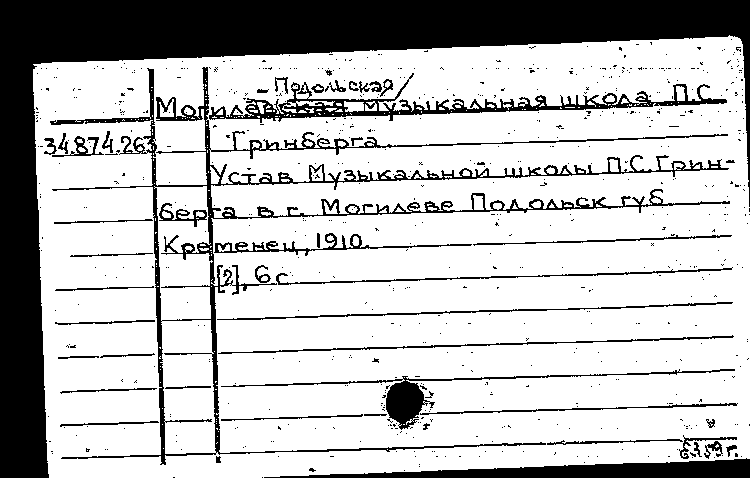 - Подольская
Могилевская музыкальная школа П.С.
34.874.263 Гринберга.
Устав Музыкальной школы П.С. Грин-
берга в г. Могилеве Подольск губ.
Кременец, 1910.
[2], 6 с